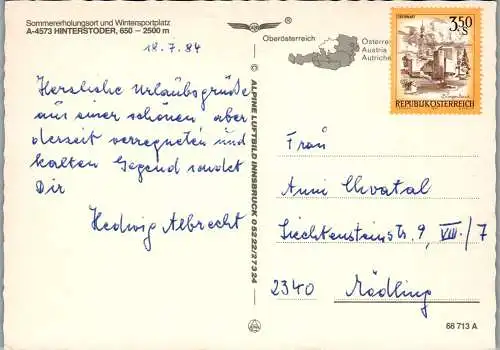 Sommererholungsort und Wintersportplatz
A-4573 HINTERSTODER, 650 – 2500 m
18.7.84
Herzliche Urlaubsgrüße
aus einer schönen aber
derzeit verregneten und
kalten Gegend sendet
Dir
Hedwig Albrecht
© ALPINE LUFTBILD INNSBRUCK 05222/27324
Oberösterreich
Österreich
Austria
Autriche
3.50
S
REPUBLIK ÖSTERREICH
Frau
Anni Chvatal
Liechtensteinstr. 9, VIII./7
2340 Mödling
68 713 A